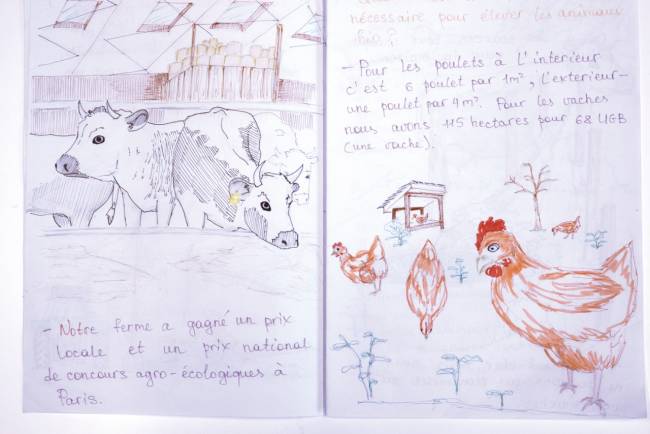 - Notre ferme a gagné un prix
locale et un prix national
de concours agro-écologiques à
Paris.
nécessaire pour élever les animaux
bio?
- Pour les poulets à L'interieur
c'est 6 poulet par 1m², L'exterieur-
une poulet par 4m². Pour les vaches
nous avons 115 hectares pour 68 UGB
(une vache).